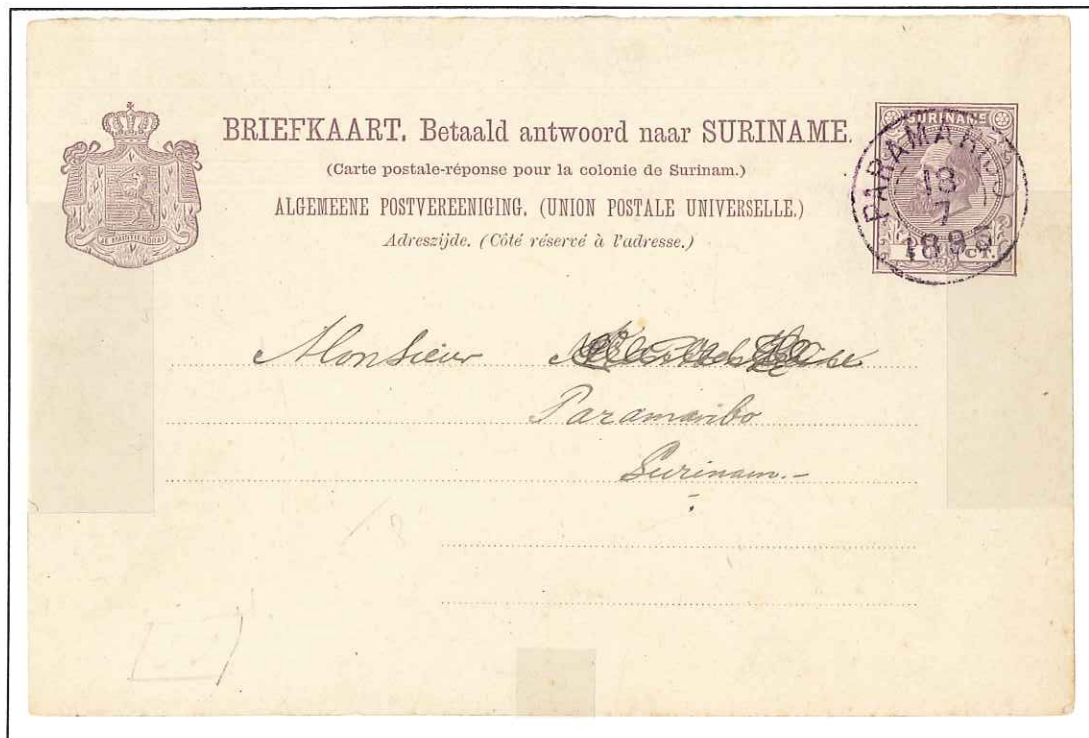 BRIEFKAART. Betaald antwoord naar SURINAME.
(Carte postale-réponse pour la colonie de Surinam.)
ALGEMEENE POSTVEREENIGING. (UNION POSTALE UNIVERSELLE.)
Adreszijde. (Côté réservé à l'adresse.)
JE MAINTIENDRAI
SURINAME
CT.
PARAMARIBO
18
7
Monsieur
Paramaribo
Surinam.-